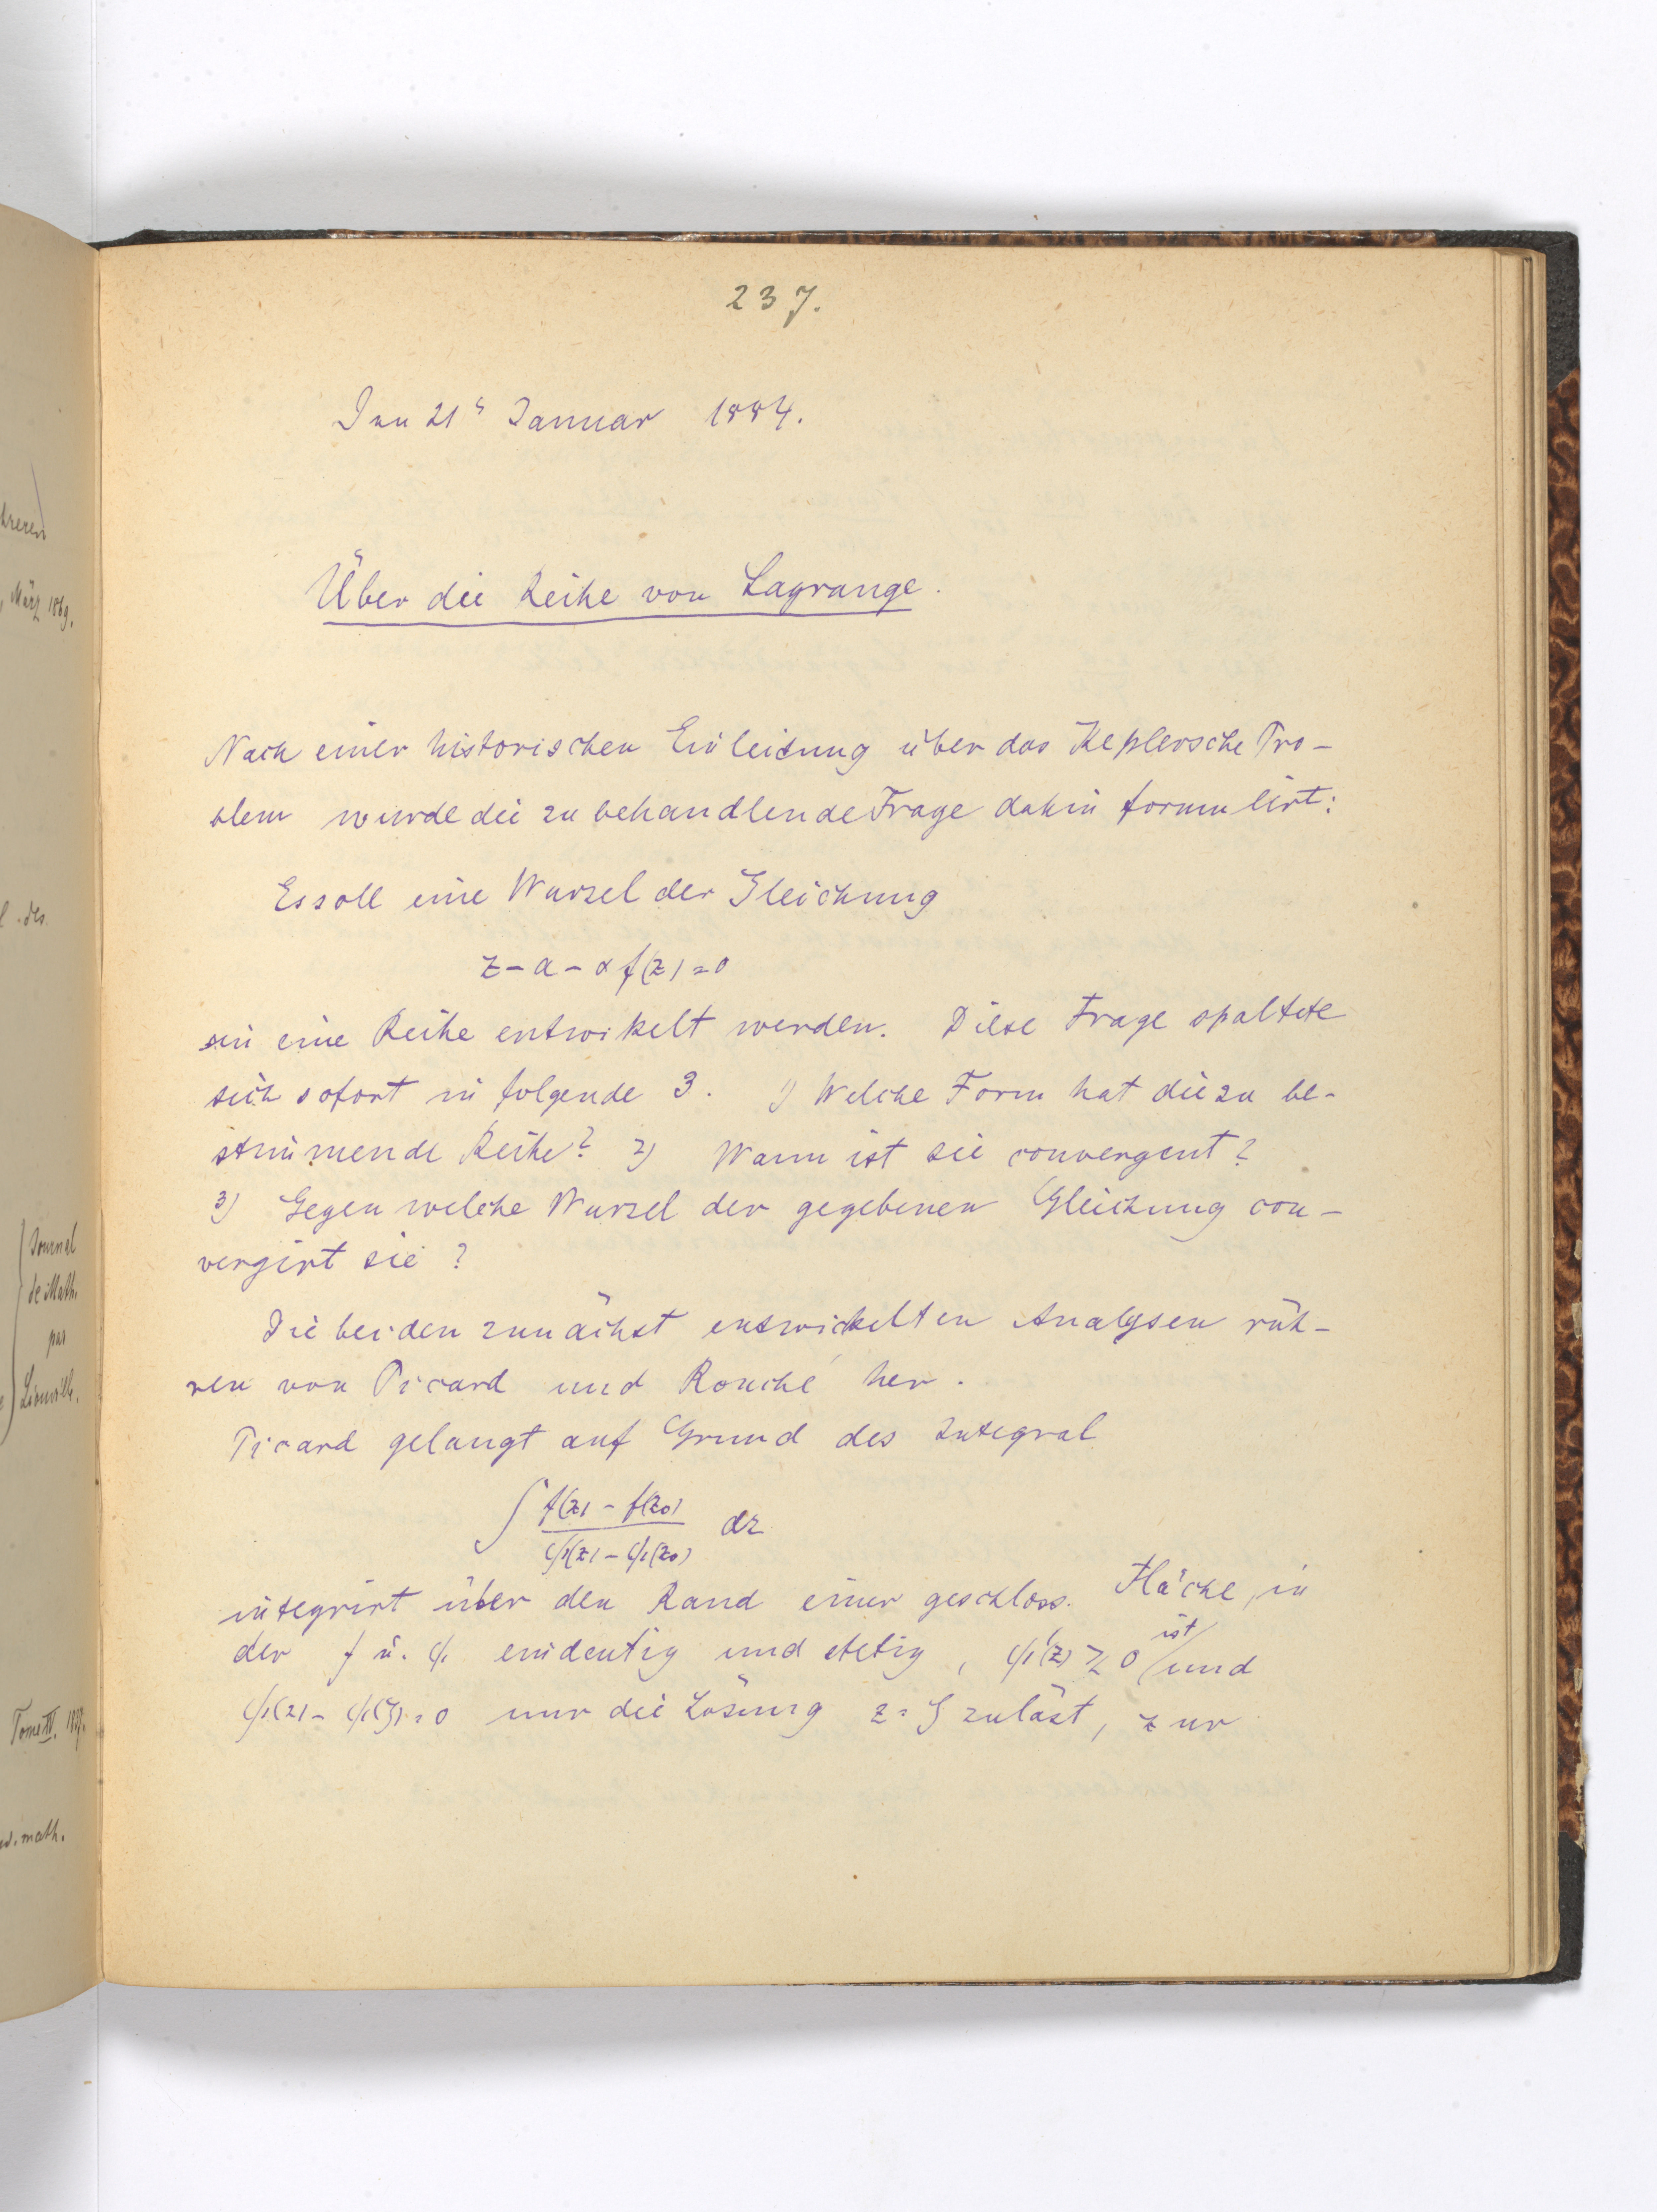 237.
Den 21t Januar 1884.
Über die Reihe von Lagrange.
Nach einer historischen Einleitung über das Keplersche Pro-
blem wurde die zu behandlende Frage dahin formulirt:
Es soll eine Wurzel der Gleichung
z - a - α f(z) = 0
in eine Reihe entwikelt werden. Diese Frage spaltete
sich sofort in folgende 3. 1) Welche Form hat die zu be-
stimmende Reihe? 2) Wann ist sie convergent?
3) Gegen welche Wurzel der gegebenen Gleichung con-
vergirt sie?
Die beiden zunächst entwickelten Analysen rüh-
ren von Picard und Rouché her.
Picard gelangt auf Grund des Integral
∫ f(z) - f(z₀) / ψ(z) - ψ(z₀) dz
integrirt über den Rand einer geschloss. Fläche, in
der f u. ψ eindeutig und stetig, ψ'(z) ≷ 0 ist und
ψ(z) - ψ(ζ) = 0 nur die Lösung z = ζ zuläst, zur
März 1869.
des
Journal
de Math.
par
Liouville.
Tome IV.
math.